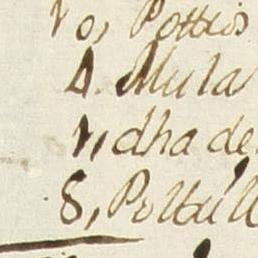 10, Pottios
4. Mula
1, dha de
8, Poltill